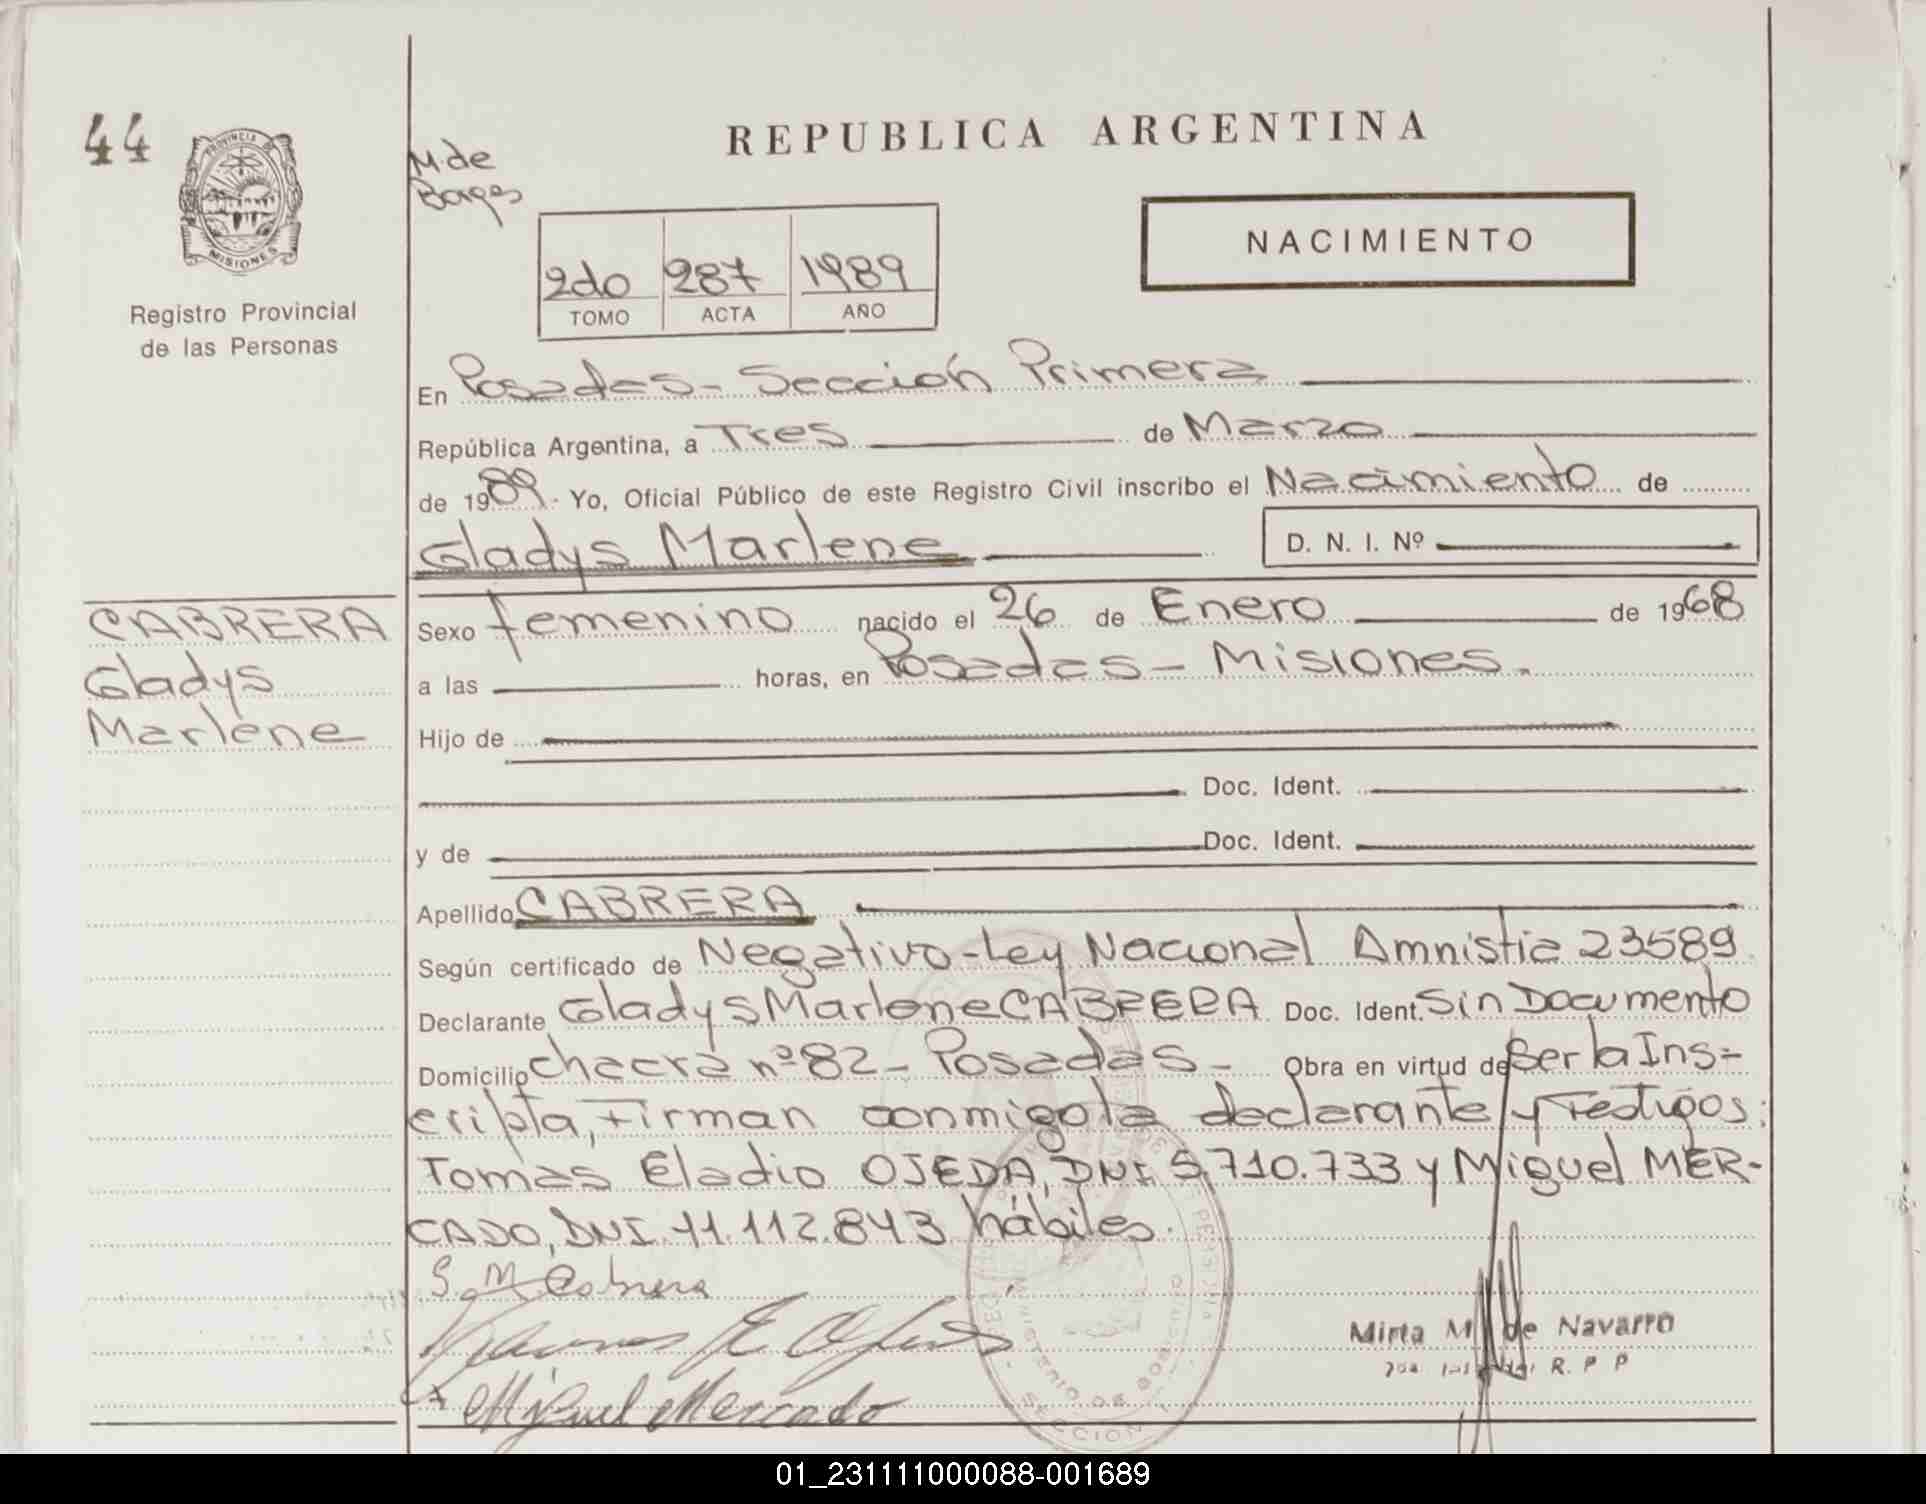 44
PROVINCIA DE
MISIONES
Registro Provincial
de las Personas
M. de
Borges
REPUBLICA ARGENTINA
NACIMIENTO
2do 287 1989
TOMO ACTA AÑO
En Posadas - Sección Primera
República Argentina, a Tres de Marzo
de 1989. Yo, Oficial Público de este Registro Civil inscribo el Nacimiento de
Gladys Marlene D. N. I. Nº
CABRERA
Gladys
Marlene
Sexo femenino nacido el 26 de Enero de 1968
a las horas, en Posadas - Misiones.
Hijo de
Doc. Ident.
y de Doc. Ident.
Apellido CABRERA
Según certificado de Negativo - Ley Nacional Amnistia 23589
Declarante Gladys Marlene CABRERA Doc. Ident. Sin Documento
Domicilio chacra nº 82 - Posadas - Obra en virtud de Ser la Ins-
cripta, Firman conmigo la declarante y Testigos:
Tomas Eladio OJEDA, DNI. 5.710.733 y Miguel MER-
CADO, DNI. 11.112.843 hábiles.
G. M. Cabrera
Miguel Mercado
Mirta M de Navarro
R. P P
MINISTERIO DE GOBIERNO
SECCION 1
01_231111000088-001689